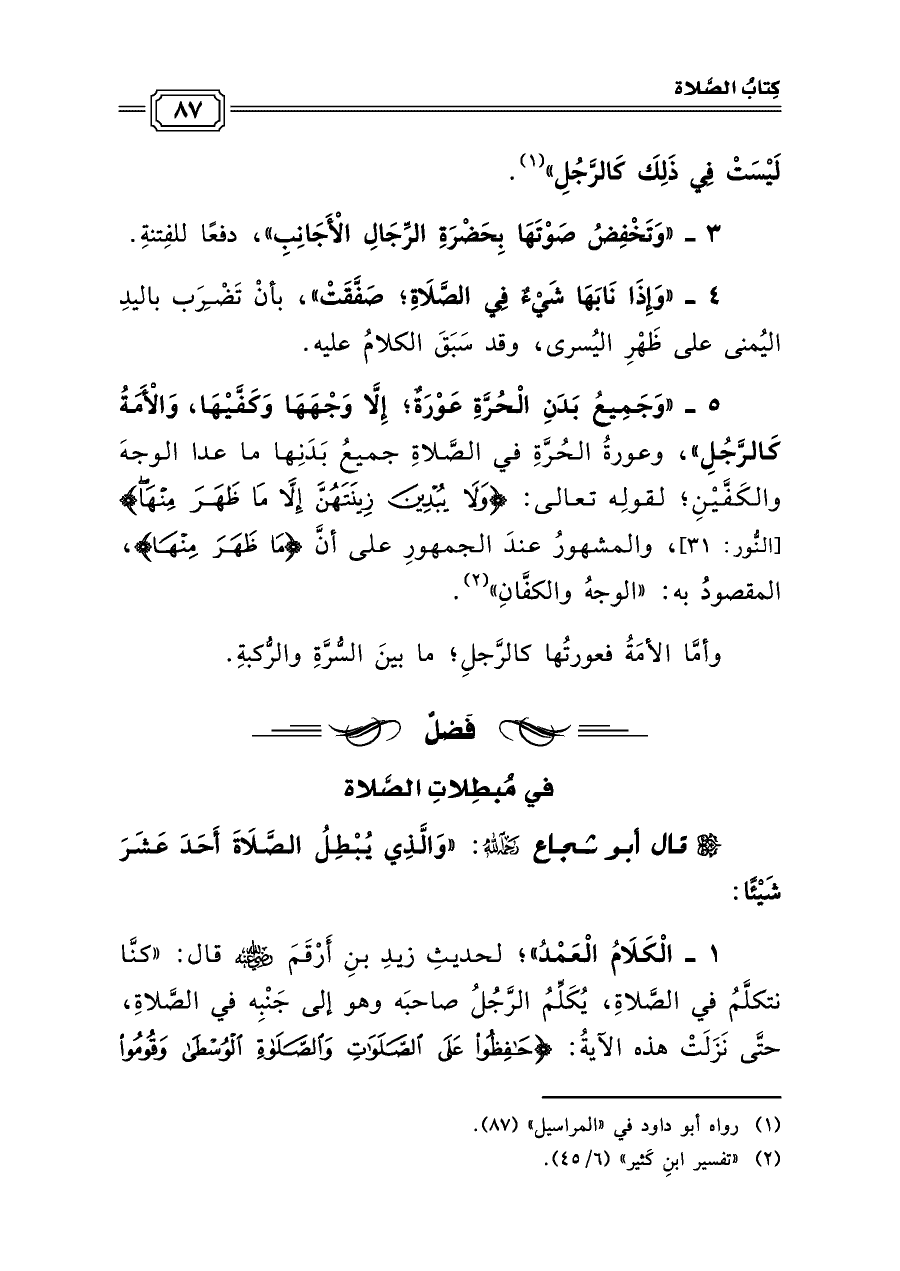 كِتابُ الصَّلاة
٨٧
لَيْسَتْ فِي ذَلِكَ كَالرَّجُلِ»(١).
٣ ـ «وَتَخْفِضُ صَوْتَهَا بِحَضْرَةِ الرِّجَالِ الْأَجَانِبِ»، دفعًا للفِتنةِ.
٤ ـ «وَإِذَا نَابَهَا شَيْءٌ فِي الصَّلَاةِ؛ صَفَّقَتْ»، بأنْ تَضْرِبَ باليدِ
اليُمنى على ظَهْرِ اليُسرى، وقد سَبَقَ الكلامُ عليه.
٥ ـ «وَجَمِيعُ بَدَنِ الْحُرَّةِ عَوْرَةٌ؛ إِلَّا وَجْهَهَا وَكَفَّيْهَا، وَالْأَمَةُ
كَالرَّجُلِ»، وعورةُ الحُرَّةِ في الصَّلاةِ جميعُ بَدَنِها ما عدا الوجهَ
والكَفَّيْنِ؛ لقولِه تعالى: ﴿وَلَا يُبْدِينَ زِينَتَهُنَّ إِلَّا مَا ظَهَرَ مِنْهَاۖ﴾
[النُّور: ٣١]، والمشهورُ عندَ الجمهورِ على أنَّ ﴿مَا ظَهَرَ مِنْهَا﴾،
المقصودُ به: «الوجهُ والكفَّانِ»(٢).
وأمَّا الأمَةُ فعورتُها كالرَّجلِ؛ ما بينَ السُّرَّةِ والرُّكبةِ.
فَصْلٌ
في مُبطِلاتِ الصَّلاة
قال أبو شجاع رَحِمَهُ اللَّهُ: «وَالَّذِي يُبْطِلُ الصَّلَاةَ أَحَدَ عَشَرَ
شَيْئًا:
١ ـ الْكَلَامُ الْعَمْدُ»؛ لحديثِ زيدِ بنِ أَرْقَمَ رَضِيَ اللَّهُ عَنْهُ قال: «كنَّا
نتكلَّمُ في الصَّلاةِ، يُكَلِّمُ الرَّجُلُ صاحبَه وهو إلى جَنْبِه في الصَّلاةِ،
حتَّى نَزَلَتْ هذه الآيةُ: ﴿حَٰفِظُواْ عَلَى ٱلصَّلَوَٰتِ وَٱلصَّلَوٰةِ ٱلْوُسْطَىٰ وَقُومُواْ
(١) رواه أبو داود في «المراسيل» (٨٧).
(٢) «تفسير ابنِ كَثير» (٤٥/٦).